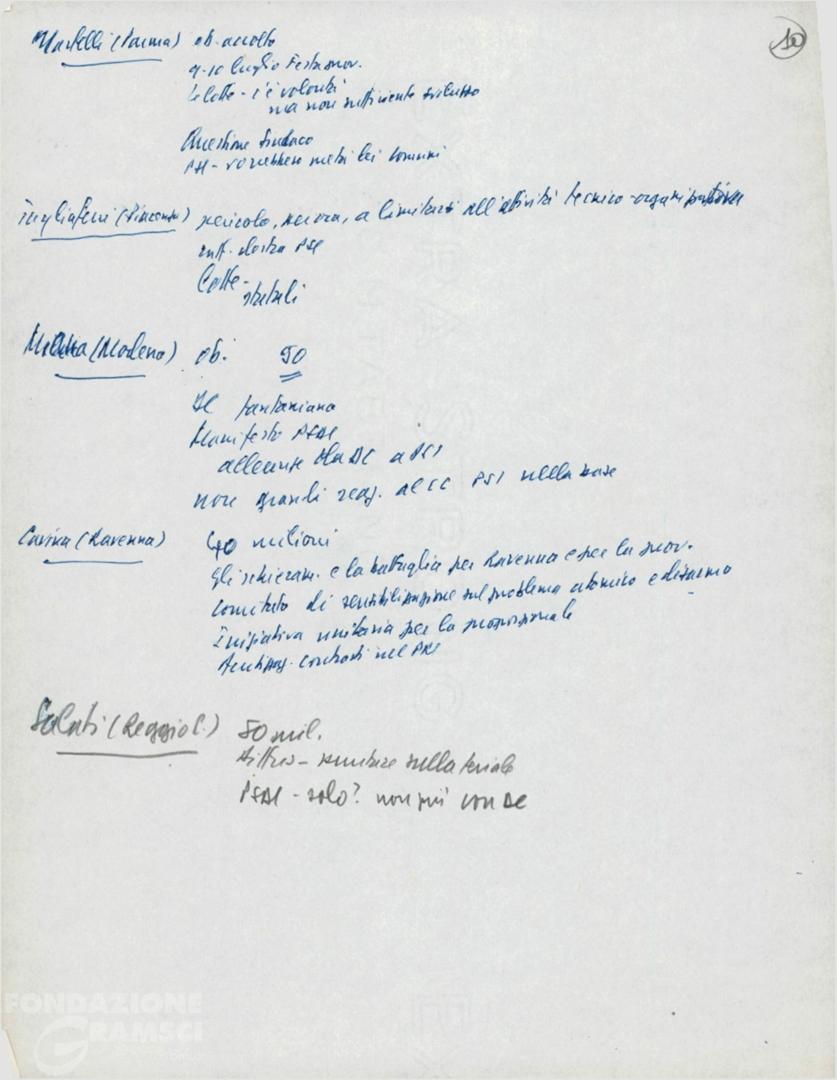 10
Martelli (Parma) ob. accolto
9-10 luglio Festa prov.
Le lotte - c'è volontà
ma non sufficiente sviluppo
Questione Sindaco
PSI - vorrebbero metà dei comuni
Tagliaferri (Piacenza) pericolo, ancora, a limitarsi all'attività tecnico-organizzativa
suff. destra PSI
Lotte -
statali
(Modena) ob. 50
DC fanfaniana
Manifesto PSDI
alleanze dalla DC a PCI
non grandi reaz. al CC PSI nella base
Cavina (Ravenna) 40 milioni
gli schieram. e la battaglia per Ravenna e per la prov.
Comitato di sensibilizzazione sul problema atomico e disarmo
Iniziativa unitaria per la proporzionale
contrasti nel PRI
Salati (Reggio E.) 50 mil.
sulla
PSDI - solo? non più con DC
FONDAZIONE
GRAMSCI